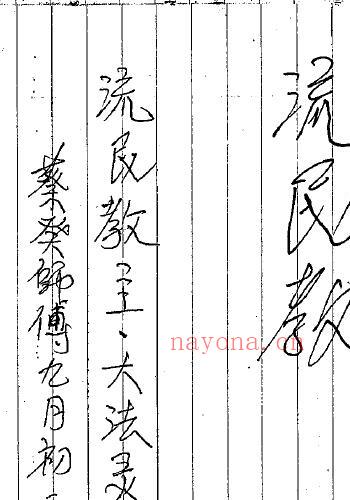 流民教
流民教主、大法录
蔡癸师傅九月初
nayona.cn